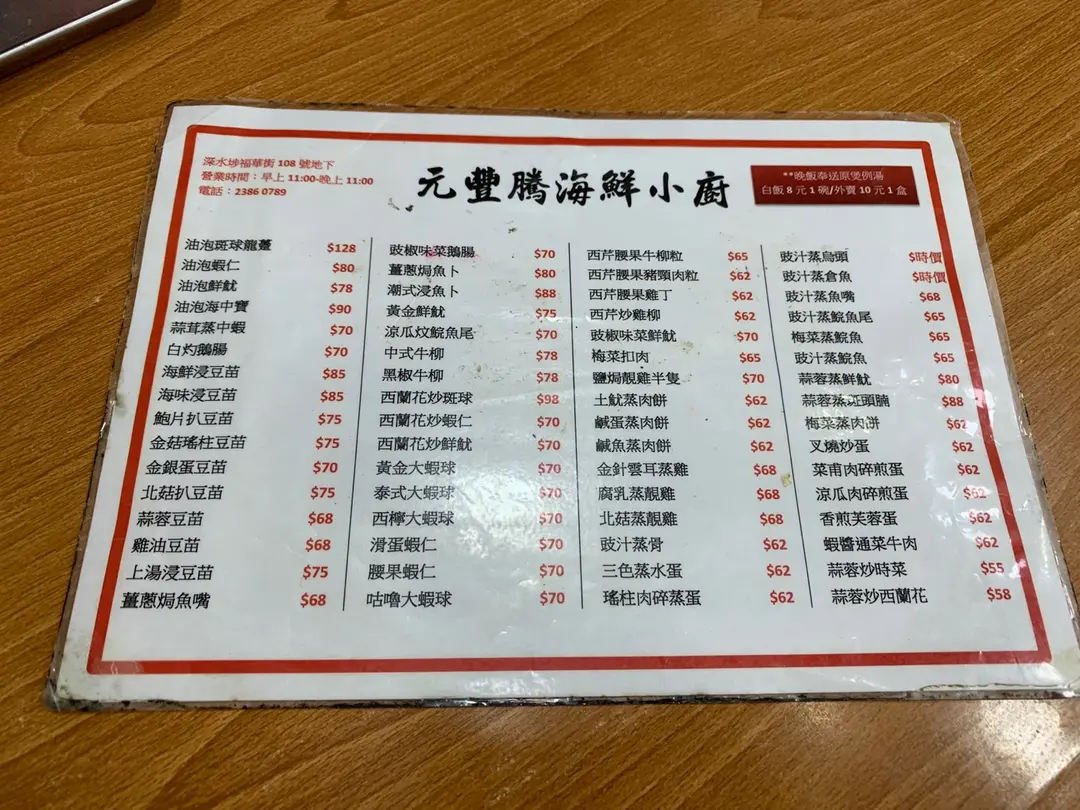 深水埗福華街 108 號地下
營業時間：早上 11:00-晚上 11:00
電話：2386 0789
元豐騰海鮮小廚
**晚飯奉送原煲例湯
白飯 8 元 1 碗/外賣 10 元 1 盒
油泡斑球龍躉 $128
油泡蝦仁 $80
油泡鮮魷 $78
油泡海中寶 $90
蒜茸蒸中蝦 $70
白灼鵝腸 $70
海鮮浸豆苗 $85
海味浸豆苗 $85
鮑片扒豆苗 $75
金菇瑤柱豆苗 $75
金銀蛋豆苗 $70
北菇扒豆苗 $75
蒜蓉豆苗 $68
雞油豆苗 $68
上湯浸豆苗 $75
薑蔥焗魚嘴 $68
豉椒味菜鵝腸 $70
薑蔥焗魚卜 $80
潮式浸魚卜 $88
黃金鮮魷 $75
涼瓜炆鯇魚尾 $70
中式牛柳 $78
黑椒牛柳 $78
西蘭花炒斑球 $98
西蘭花炒蝦仁 $70
西蘭花炒鮮魷 $70
黃金大蝦球 $70
泰式大蝦球 $70
西檸大蝦球 $70
滑蛋蝦仁 $70
腰果蝦仁 $70
咕嚕大蝦球 $70
西芹腰果牛柳粒 $65
西芹腰果豬頸肉粒 $62
西芹腰果雞丁 $62
西芹炒雞柳 $62
豉椒味菜鮮魷 $70
梅菜扣肉 $65
鹽焗靚雞半隻 $70
土魷蒸肉餅 $62
鹹蛋蒸肉餅 $62
鹹魚蒸肉餅 $62
金針雲耳蒸雞 $68
腐乳蒸靚雞 $68
北菇蒸靚雞 $68
豉汁蒸骨 $62
三色蒸水蛋 $62
瑤柱肉碎蒸蛋 $62
豉汁蒸烏頭 $時價
豉汁蒸倉魚 $時價
豉汁蒸魚嘴 $68
豉汁蒸鯇魚尾 $65
梅菜蒸鯇魚 $65
豉汁蒸鯇魚 $65
蒜蓉蒸鮮魷 $80
蒜蓉蒸斑頭腩 $88
梅菜蒸肉餅 $62
叉燒炒蛋 $62
菜甫肉碎煎蛋 $62
涼瓜肉碎煎蛋 $62
香煎芙蓉蛋 $62
蝦醬通菜牛肉 $62
蒜蓉炒時菜 $55
蒜蓉炒西蘭花 $58